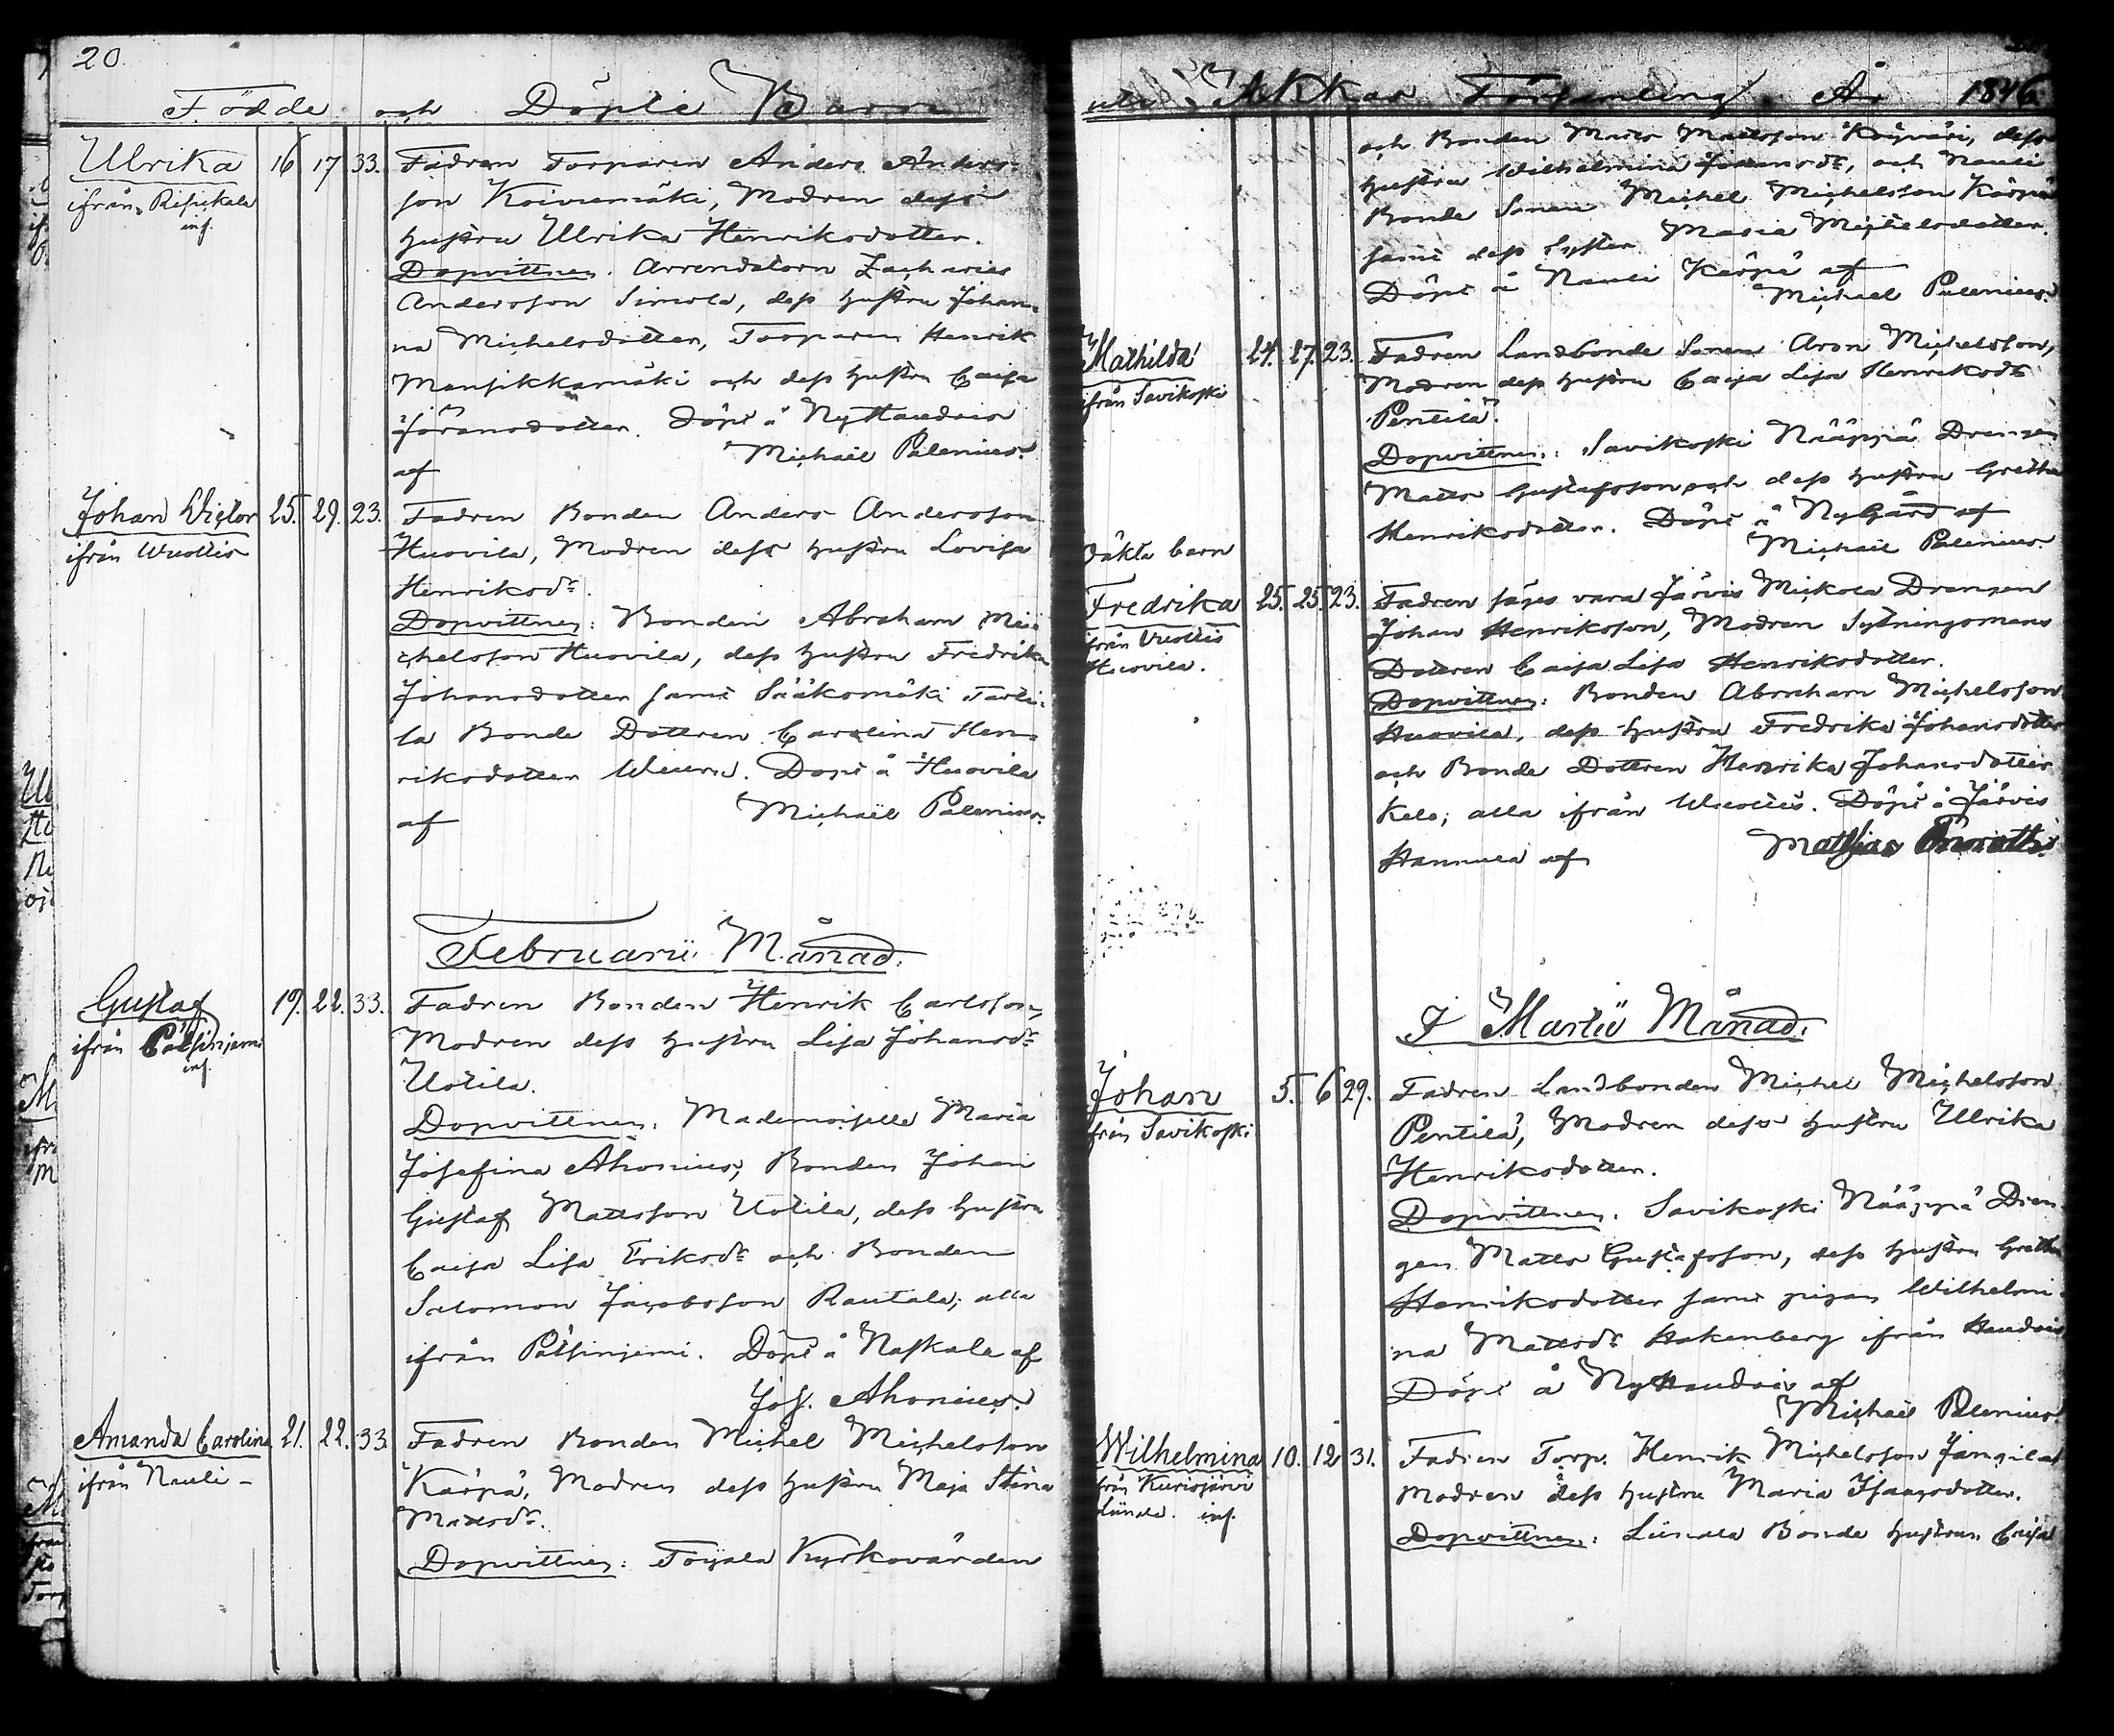 20.
Födde och Döpte Barn
Ulrika 16 17 33. Fadren Torparen Anders Anders-
ifrån Refukala son Koivumäki, Modren dess
inf. hustru Ulrika Henriksdotter.
Dopvittnen. Arrendatorn Zacharias
Andersson Simola, dess hustru Johan-
na Michelsdotter, Torparen Henrik
Mansikkamäki och dess hustru Caisa
Göransdotter. Döpt å NyHandois
af Michaël Palenius.
Johan Victor 25. 29. 23. Fadren Bonden Anders Andersson
ifrån Wuottis Huovila, Modren dess hustru Lovisa
Henriksdr.
Dopvittnen: Bonden Abraham Mi-
chelsson Huovila, dess hustru Fredrika
Johansdotter samt Sääksmäki
la Bonde Dottren Carolina Hen-
riksdotter. Döpt å Huovila
af Michaël Palenius.
Februarii Månad.
Gustaf 19. 22. 33. Fadren Bonden Henrik Carlsson,
ifrån Pätsiniemi Modren dess hustru Lisa Johansdr
inf. Uotila.
Dopvittnen. Mademoiselle Maria
Josefina Ahonius, Bonden Johan
Gustaf Mattsson Uotila, dess hustru
Caisa Lisa Eriksdr och Bonden
Salomon Jacobsson Rautala, alla
ifrån Pätsiniemi. Döpt å Naskala af
Jos. Ahonius.
Amanda Carolina 21. 22. 33. Fadren Bonden Michel Michelsson
ifrån Nauli - Kärpä, Modren dess hustru Maja Stina
Mattsdr.
Dopvittnen: Toijala Kyrkovärden
uti Akkas Församling År 1846.
och Bonden Matts Mattsson dess
hustru Wilhelmina Johansdr, och Nauli
Bonde Sonen Michel Michelsson Kärpä
samt dess Syster Maria Michelsdotter.
Döpt å Nauli Kärpä af
Michaël Palenius.
Mathilda 24. 27. 23. Fadren Landbonde Sonen Aron Michelsson,
ifrån Savikoski Modren dess hustru Caisa Lisa Henriksdr
Pentilä.
Dopvittnen: Savikoski Nääppä Drengen
Matts Gustafsson och dess hustru Gretha
Henriksdotter. Döpt å NyGård af
Michaël Palenius.
Oäkta barn
Fredrika 25. 25. 23. Fadren säges vara Järvis Mickola Drengen
från Vuottis Johan Henriksson, Modren Sytningsmans
Huovila. Dottren Caisa Lisa Henriksdotter.
Dopvittnen: Bonden Abraham Michelsson
Huovila, dess hustru Fredrika Johansdotter
och Bonde Dottren Henrika Johansdotter
Kelo; alla ifrån Wuottis. Döpt å Järvis
Hannula af Matthias
I Martii Månad.
Johan 5. 6 29. Fadren Landbonden Michel Michelsson
från Savikoski Pentilä, Modren dess hustru Ulrika
Henriksdotter.
Dopvittnen. Savikoski Nääppä Dren-
gen Matts Gustafsson, dess hustru Gretha
Henriksdotter samt pigan Wilhelmi-
na Mattsdr Hakenberg ifrån Handois
Döpt å NyHandois af
Michaël Palenius.
Wilhelmina 10. 12 31. Fadren Torp. Henrik Michelsson Jangila
från Kurisjärvi Modren dess hustru Maria Isaacsdotter.
Liunala. inf. Dopvittnen: Liunala Bonde hustrun Caisa